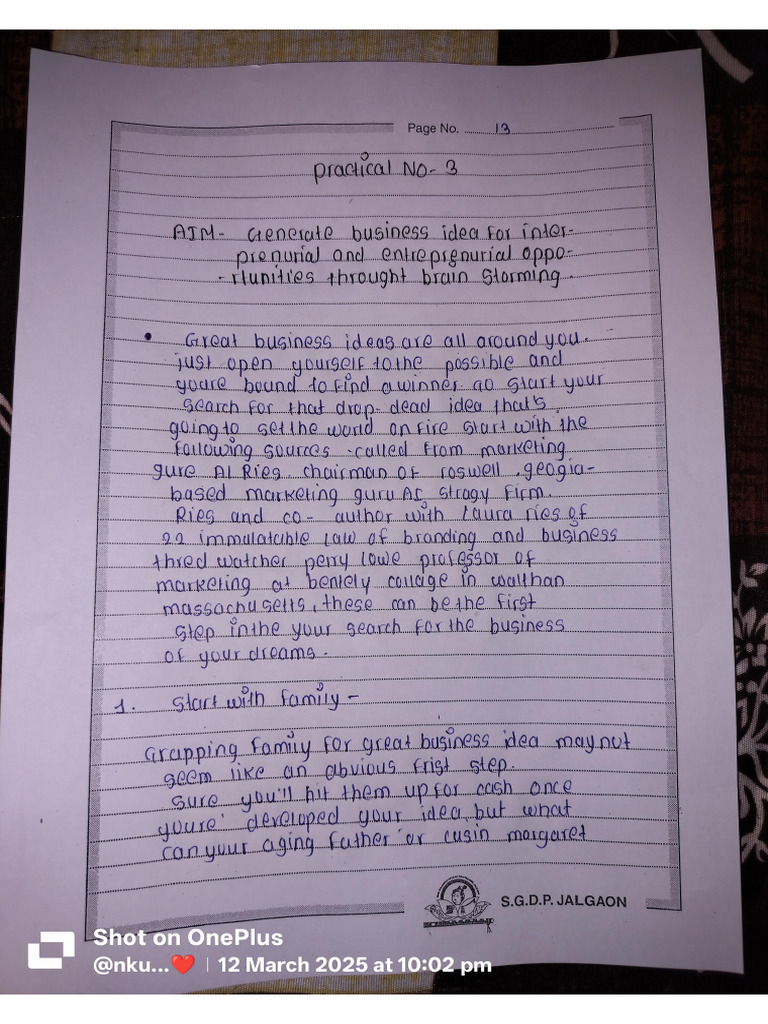 Page No. 13
practical No- 3
AIM- Generate business idea for inter-
prenurial and entreprenurial oppo-
-rtunities throught brain Storming.
• Great business ideas are all around you.
just open yourself to the possible and
youre bound to find a winner ao start your
search for that drop- dead idea that's
going to set the world on fire start with the
following sources -called from marketing
gure Al Ries, chairman of roswell ,geogia-
based marketing guru Ac stragy Firm.
Ries and co- author with Laura ries of
22 immulatable law of branding and business
thred watcher perry lowe professor of
marketing at bentely collage in walthan
massachusetts, these can be the first
step in the your search for the business
of your dreams.
1. Start with family -
Grapping family for great business idea may not
seem like an obvious frist step.
sure you'll hit them up for cash once
youre' developed your idea, but what
can your aging father or cusin margaret
S.G.D.P. JALGAON
Shot on OnePlus
@nku...❤️ | 12 March 2025 at 10:02 pm